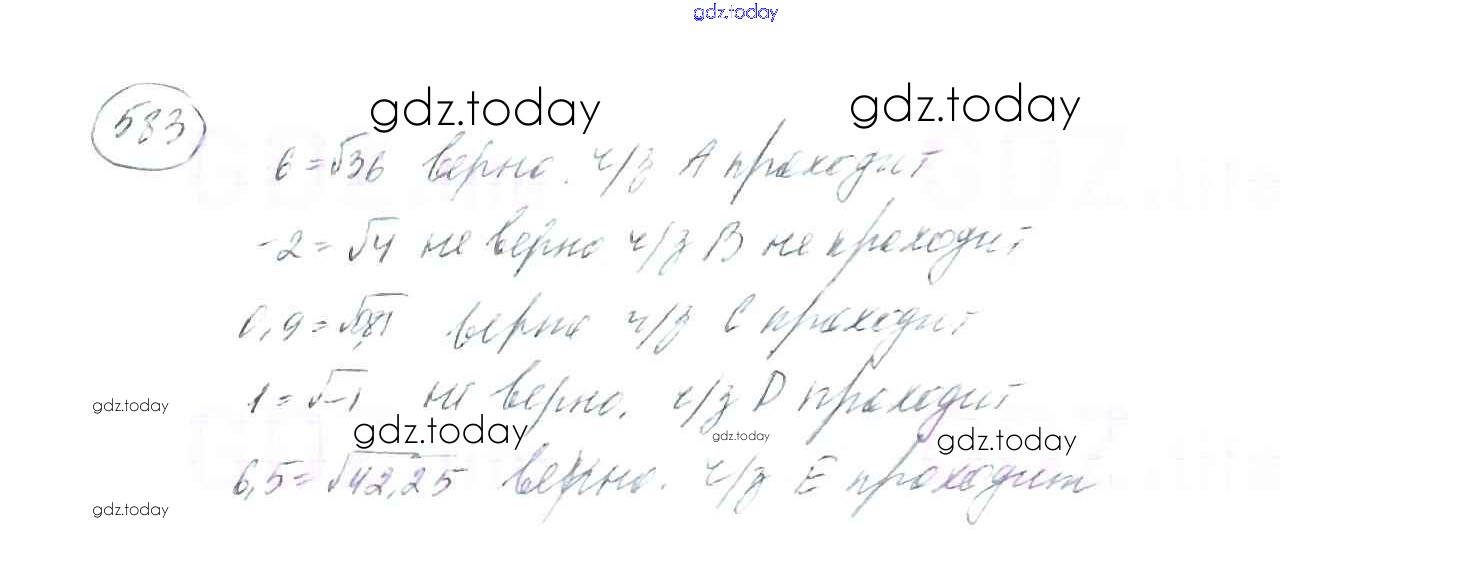 gdz.today
583
gdz.today gdz.today
6 = √36 верно. ч/з A проходит
-2 = √4 не верно ч/з B не проходит
0,9 = √0,81 верно ч/з C проходит
1 = √-1 не верно. ч/з D проходит
gdz.today
gdz.today gdz.today gdz.today
6,5 = √42,25 верно. ч/з E проходит
gdz.today